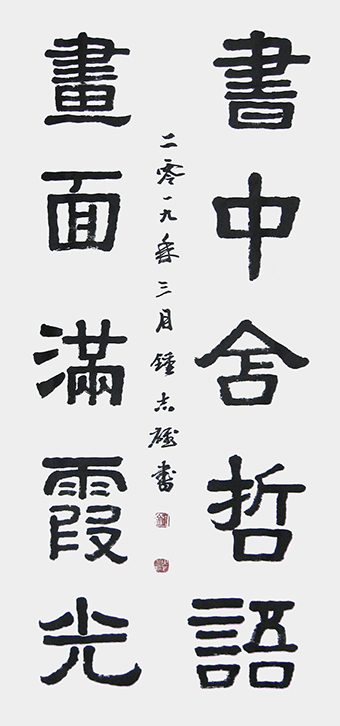 書中含哲語
畫面滿霞光
二零一九年三月鍾志雄書